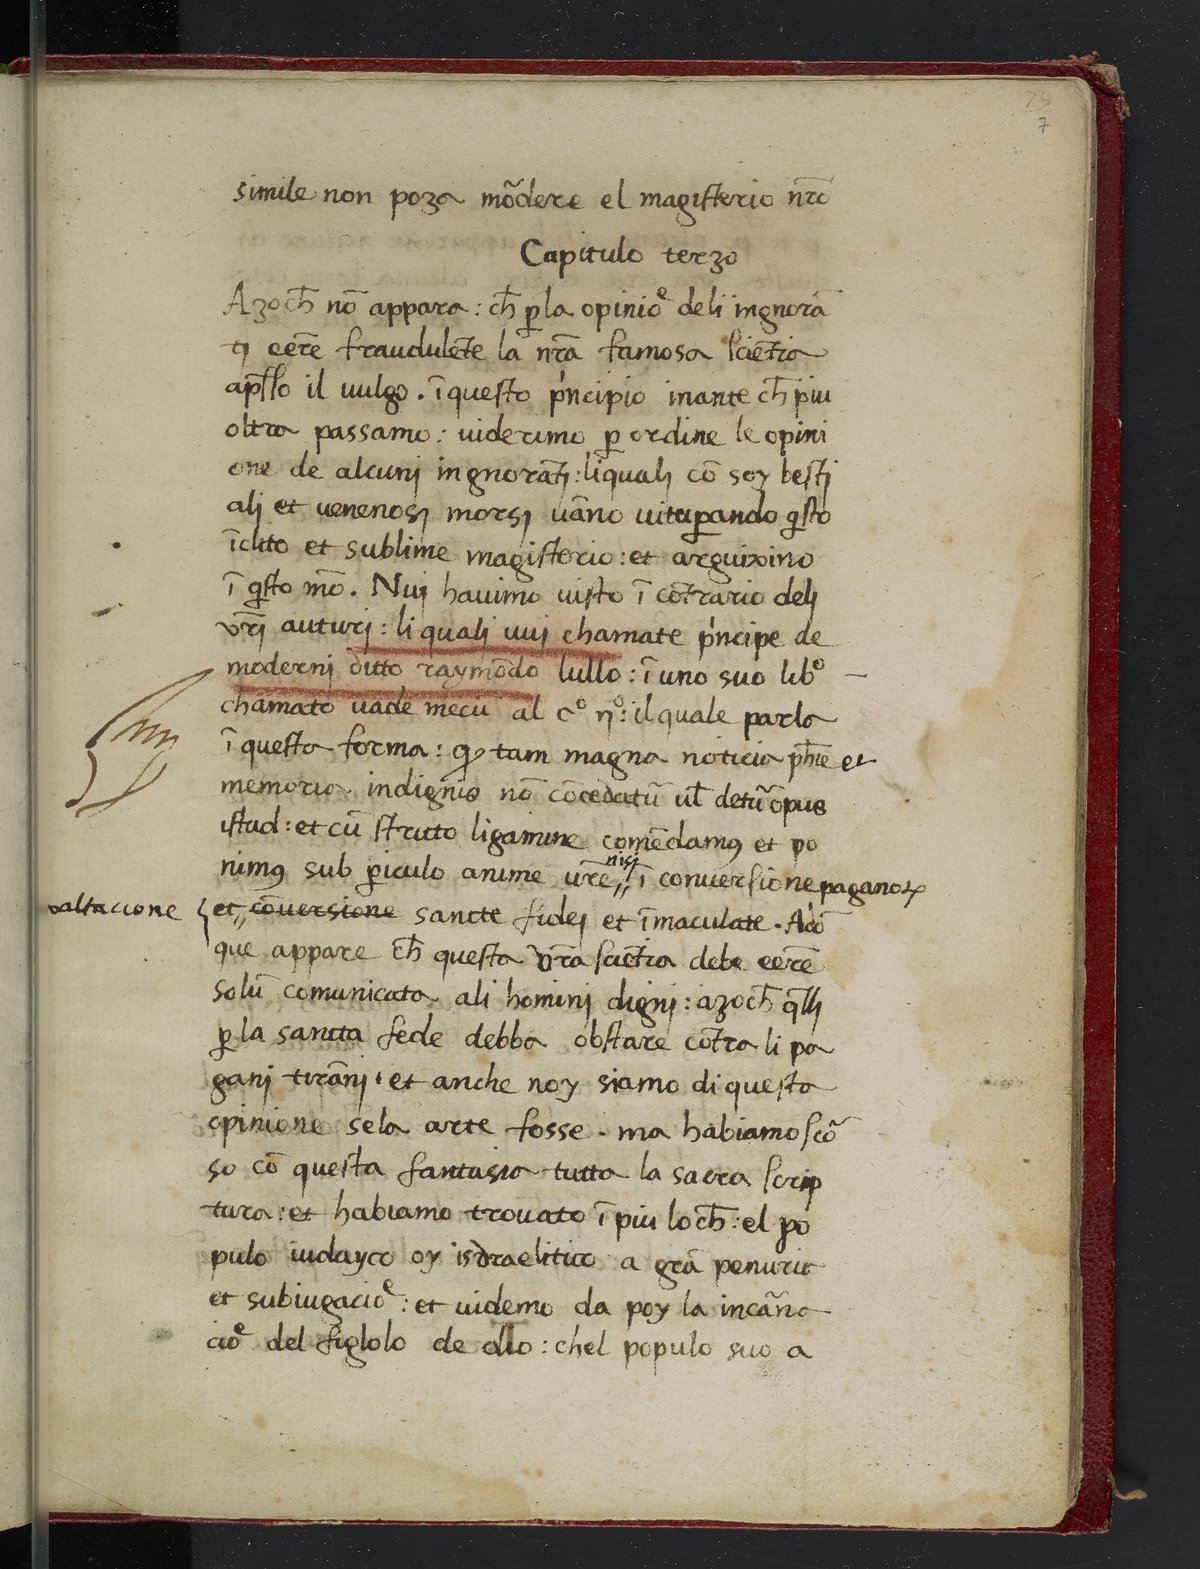 7
simile non poza mõdere el magisterio nr̃o
Capitulo terzo
Azoch̃ nõ appara : ch̃ ꝑ la opinioᵉ deli ingnorã
tj eẽre fraudulẽte la nr̃a famosa sciẽtia
ap̃sso il uulgo . ĩ questo pͥncipio inante ch̃ piu
oltra passamo : uiderimo ꝑ ordine le opini
one de alcunj ingnorãtj : li qualj cõ soy bestj
alj et uenenosj morsj uãno uituꝑando q̃sto
ĩclito et sublime magisterio : et arguixino
ĩ q̃sto mõ . Nuj hauimo uisto ĩ cõtrario delj
vr̃j auturj : li qualj uuj chamate pͥncipe de
modernj ditto raymõdo lullo : ĩ uno suo libᵒ
chamato uade mecũ al cᵒ nᵒ : il quale parla
ĩ questa forma : tam magna noticia ph̃ie et
memoria indignis nõ cõcedatũ ul̃ detũ opus
istud : et cũ stricto ligamine comẽdamꝰ et po
nimꝰ sub ꝑiculo anime ur̃e nisj ĩ conuersione paganoꝝ
xaltacione
et cõuersione sancte fidej et ĩmaculate . Adõ
que appare ch̃ questa vr̃a sciẽtia debe eẽre
solũ comunicata ali hominj dignj : azoch̃ q̃llj
ꝑ la sancta fede debba obstare cõtra li pa
ganj tirãnj . et anche noy siamo di questa
opinione se la arte fosse . ma habiamo scõ
so cõ questa fantasia tutta la sacra scrip
tura : et habiamo trouato ĩ piu loch̃ : el po
pulo iudayco oy isdraelitico a grã penuria
et subiugacioᵉ : et uidemo da poy la incãna
cioᵉ del figlolo de dio : chel populo suo a